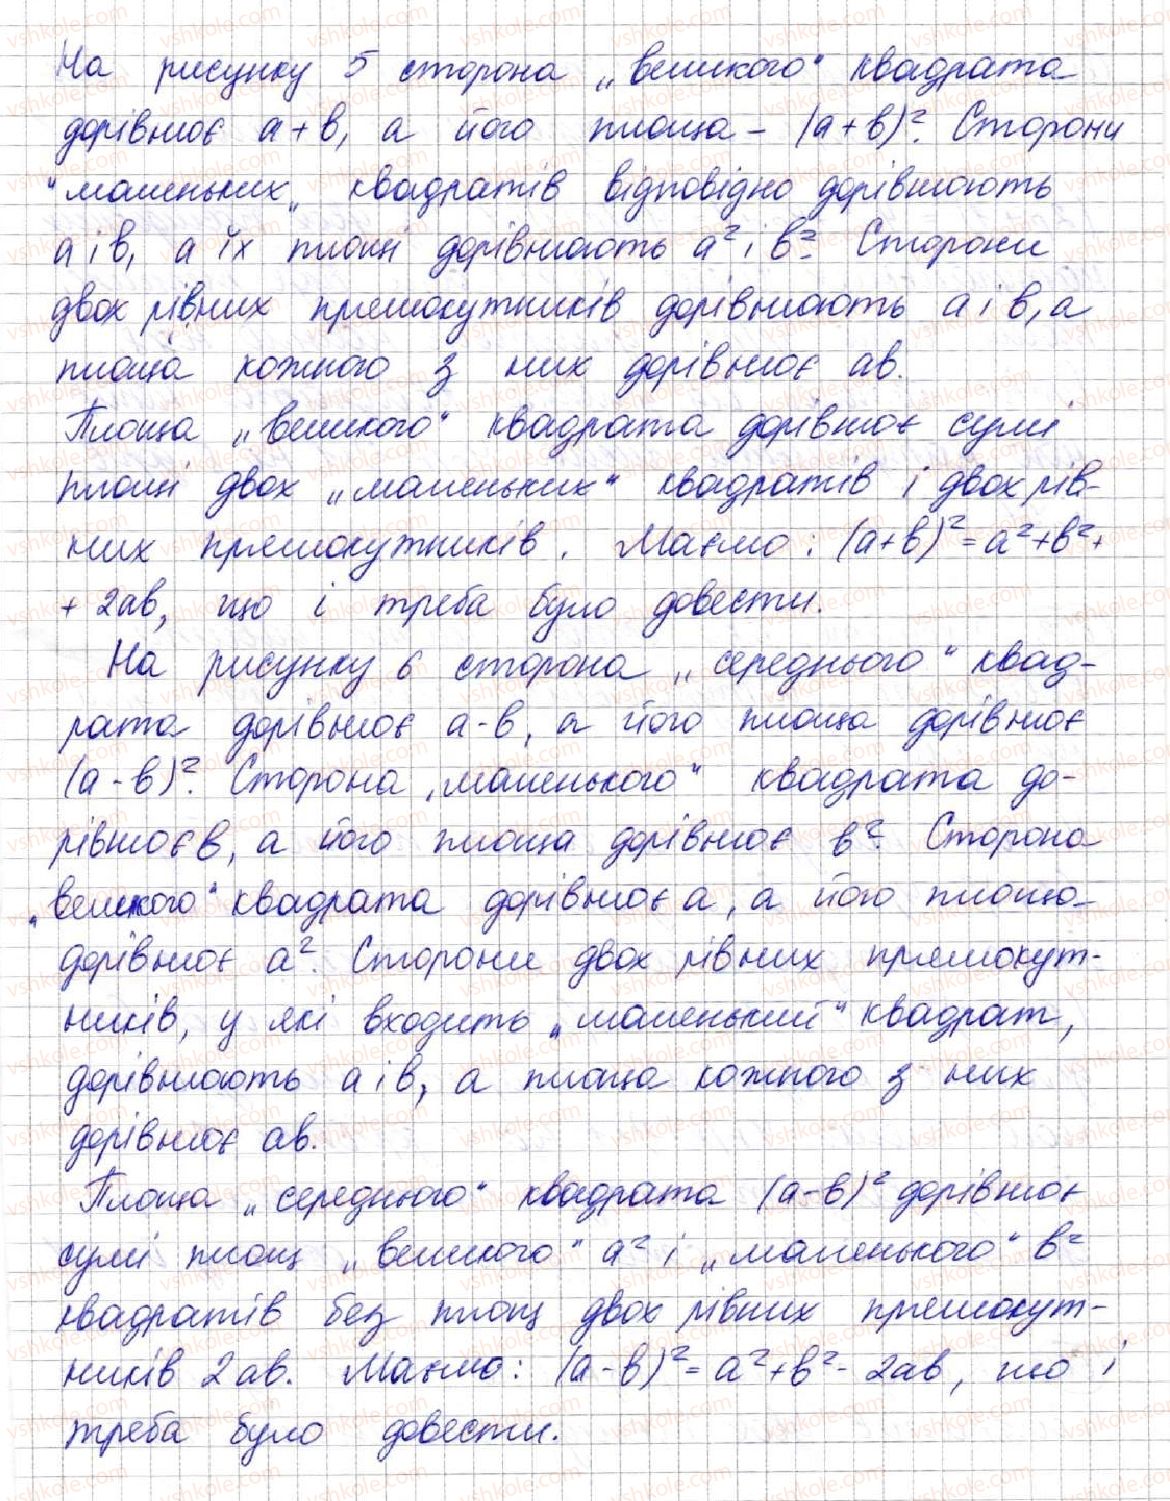 На рисунку 5 сторона „великого“ квадрата
дорівнює а+в, а його площа – (а+в)². Сторони
"маленьких„ квадратів відповідно дорівнюють
а і в, а їх площі дорівнюють а² і в². Сторони
двох рівних прямокутників дорівнюють а і в, а
площа кожного з них дорівнює ав.
Площа „великого“ квадрата дорівнює сумі
площі двох „маленьких“ квадратів і двох рів-
них прямокутників. Маємо: (а+в)²=а²+в²+
+ 2ав, що і треба було довести.
На рисунку 6 сторона „середнього“ квад-
рата дорівнює а-в, а його площа дорівнює
(а-в)². Сторона „маленького“ квадрата до-
рівнює в, а його площа дорівнює в². Сторона
„великого“ квадрата дорівнює а, а його площа
дорівнює а². Сторони двох рівних прямокут-
ників, у які входить „маленький“ квадрат,
дорівнюють а і в, а площа кожного з них
дорівнює ав.
Площа „середнього“ квадрата (а-в)² дорівнює
сумі площ „великого“ а² і „маленького“ в²
квадратів без площ двох рівних прямокут-
ників 2ав. Маємо: (а-в)²=а²+в²-2ав, що і
треба було довести.